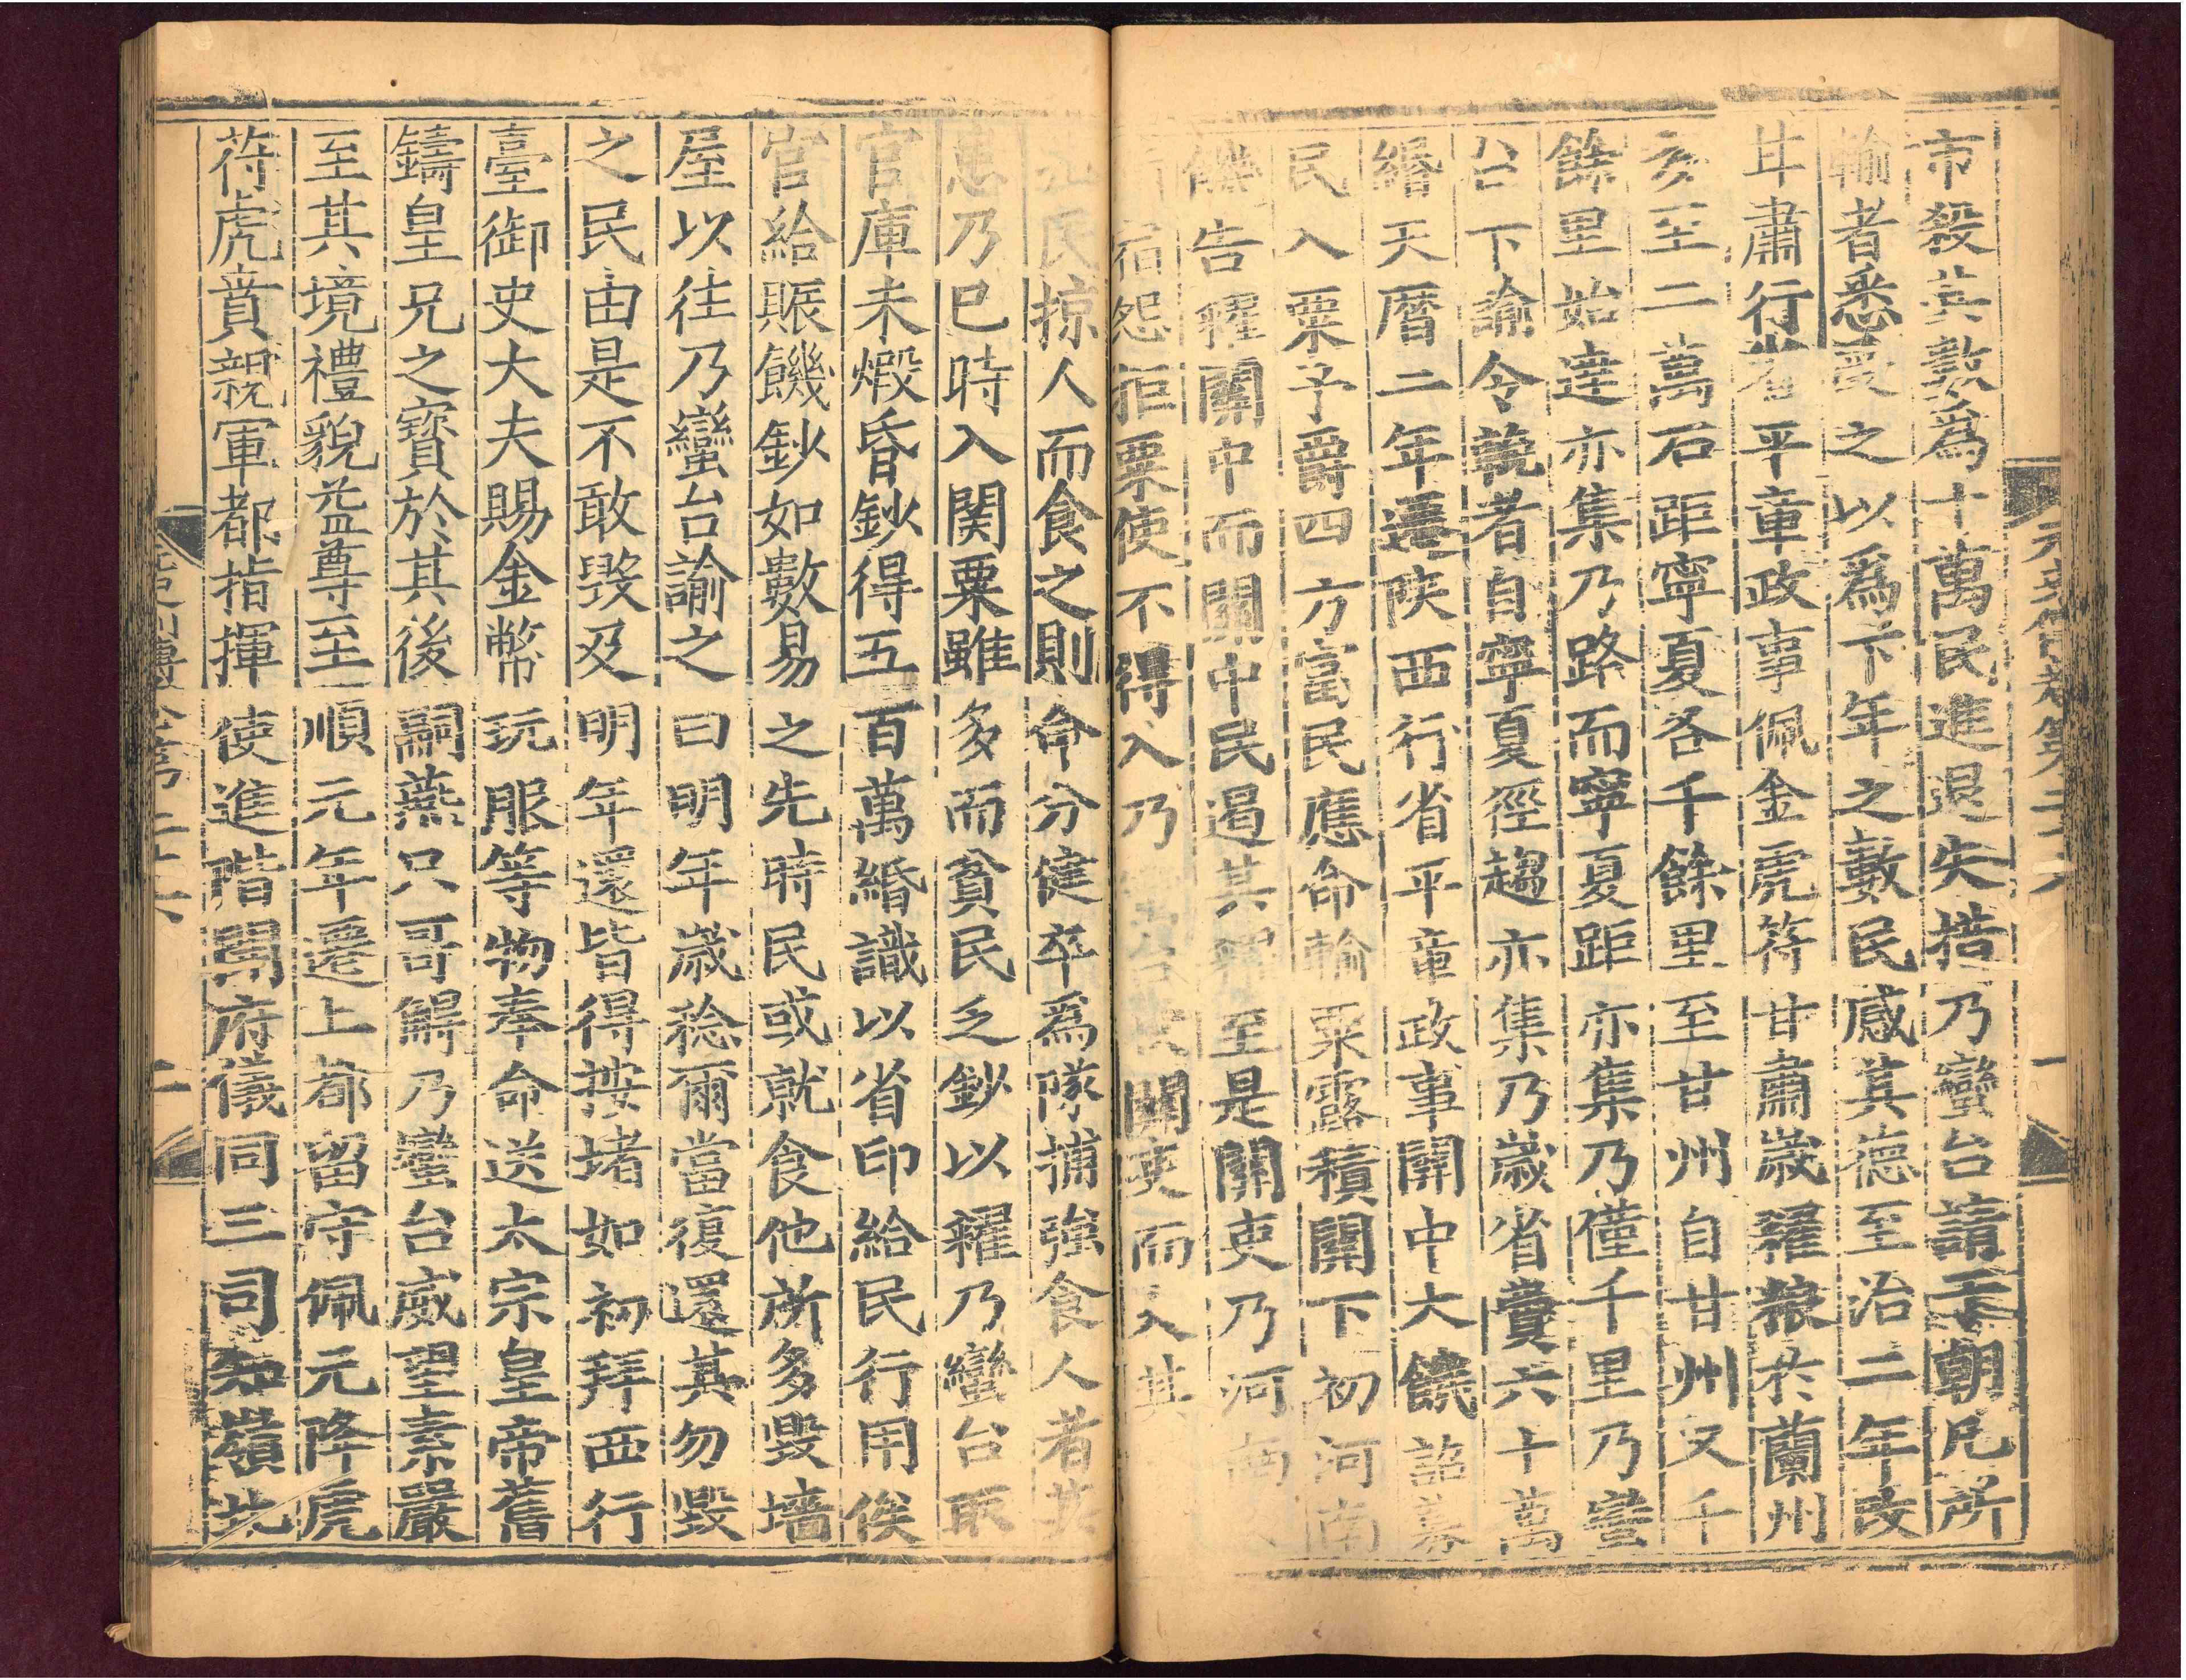 市殺其數爲十萬民進退失措乃蠻台請于朝凡所
輸者悉受之以爲下年之數民感其德至治二年改
甘肅行省平章政事佩金虎符甘肅歲糴粮於蘭州
多至二萬石距寧夏各千餘里至甘州自甘州又千
餘里始達亦集乃路而寧夏距亦集乃僅千里乃蠻
台下諭令輓者自寧夏徑趨亦集乃歲省費六十萬
緡天曆二年遷陝西行省平章政事關中大饑詔募
民入粟予爵四方富民應命輸粟露積關下初河南
饑告糴關中而關中民遏其糴至是關吏乃河南
宿怨拒粟使不得入乃台關吏而入其
民掠人而食之則命分健卒爲隊捕強食人者其
患乃已時入関粟雖多而貧民乏鈔以糴乃蠻台取
官庫未煅昏鈔得五百萬緡識以省印給民行用俟
官給賑饑鈔如數易之先時民或就食他所多毀墻
屋以往乃蠻台諭之曰明年歲稔爾當復還其勿毀
之民由是不敢毀及明年還皆得按堵如初拜西行
臺御史大夫賜金幣玩服等物奉命送太宗皇帝舊
鑄皇兄之寶於其後嗣燕只哥䚟乃蠻台威望素嚴
至其境禮貌益尊至順元年遷上都留守佩元降虎
符虎賁親軍都指揮使進階開府儀同三司知嶺北